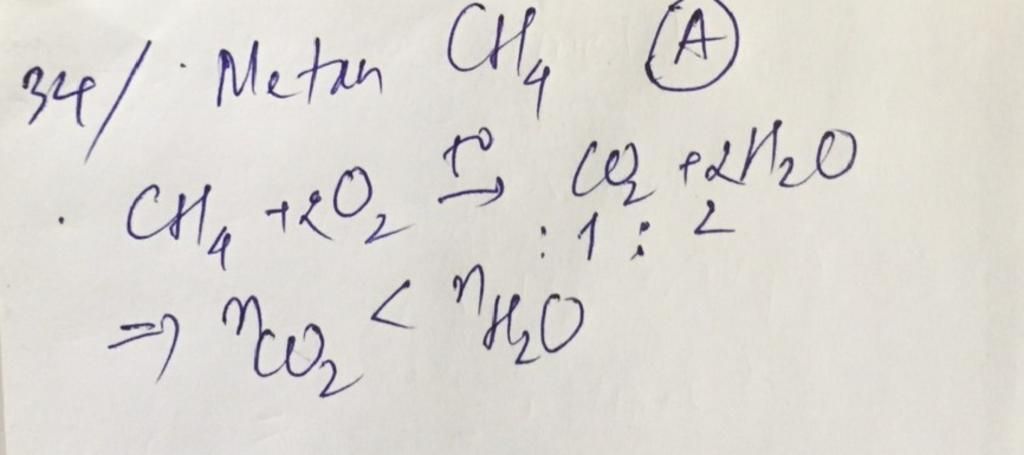 34/ · Metan CH₄ Ⓐ
· CH₄ + 2O₂ t°→ CO₂ + 2H₂O
: 1 : 2
⇒ nCO₂ < nH₂O